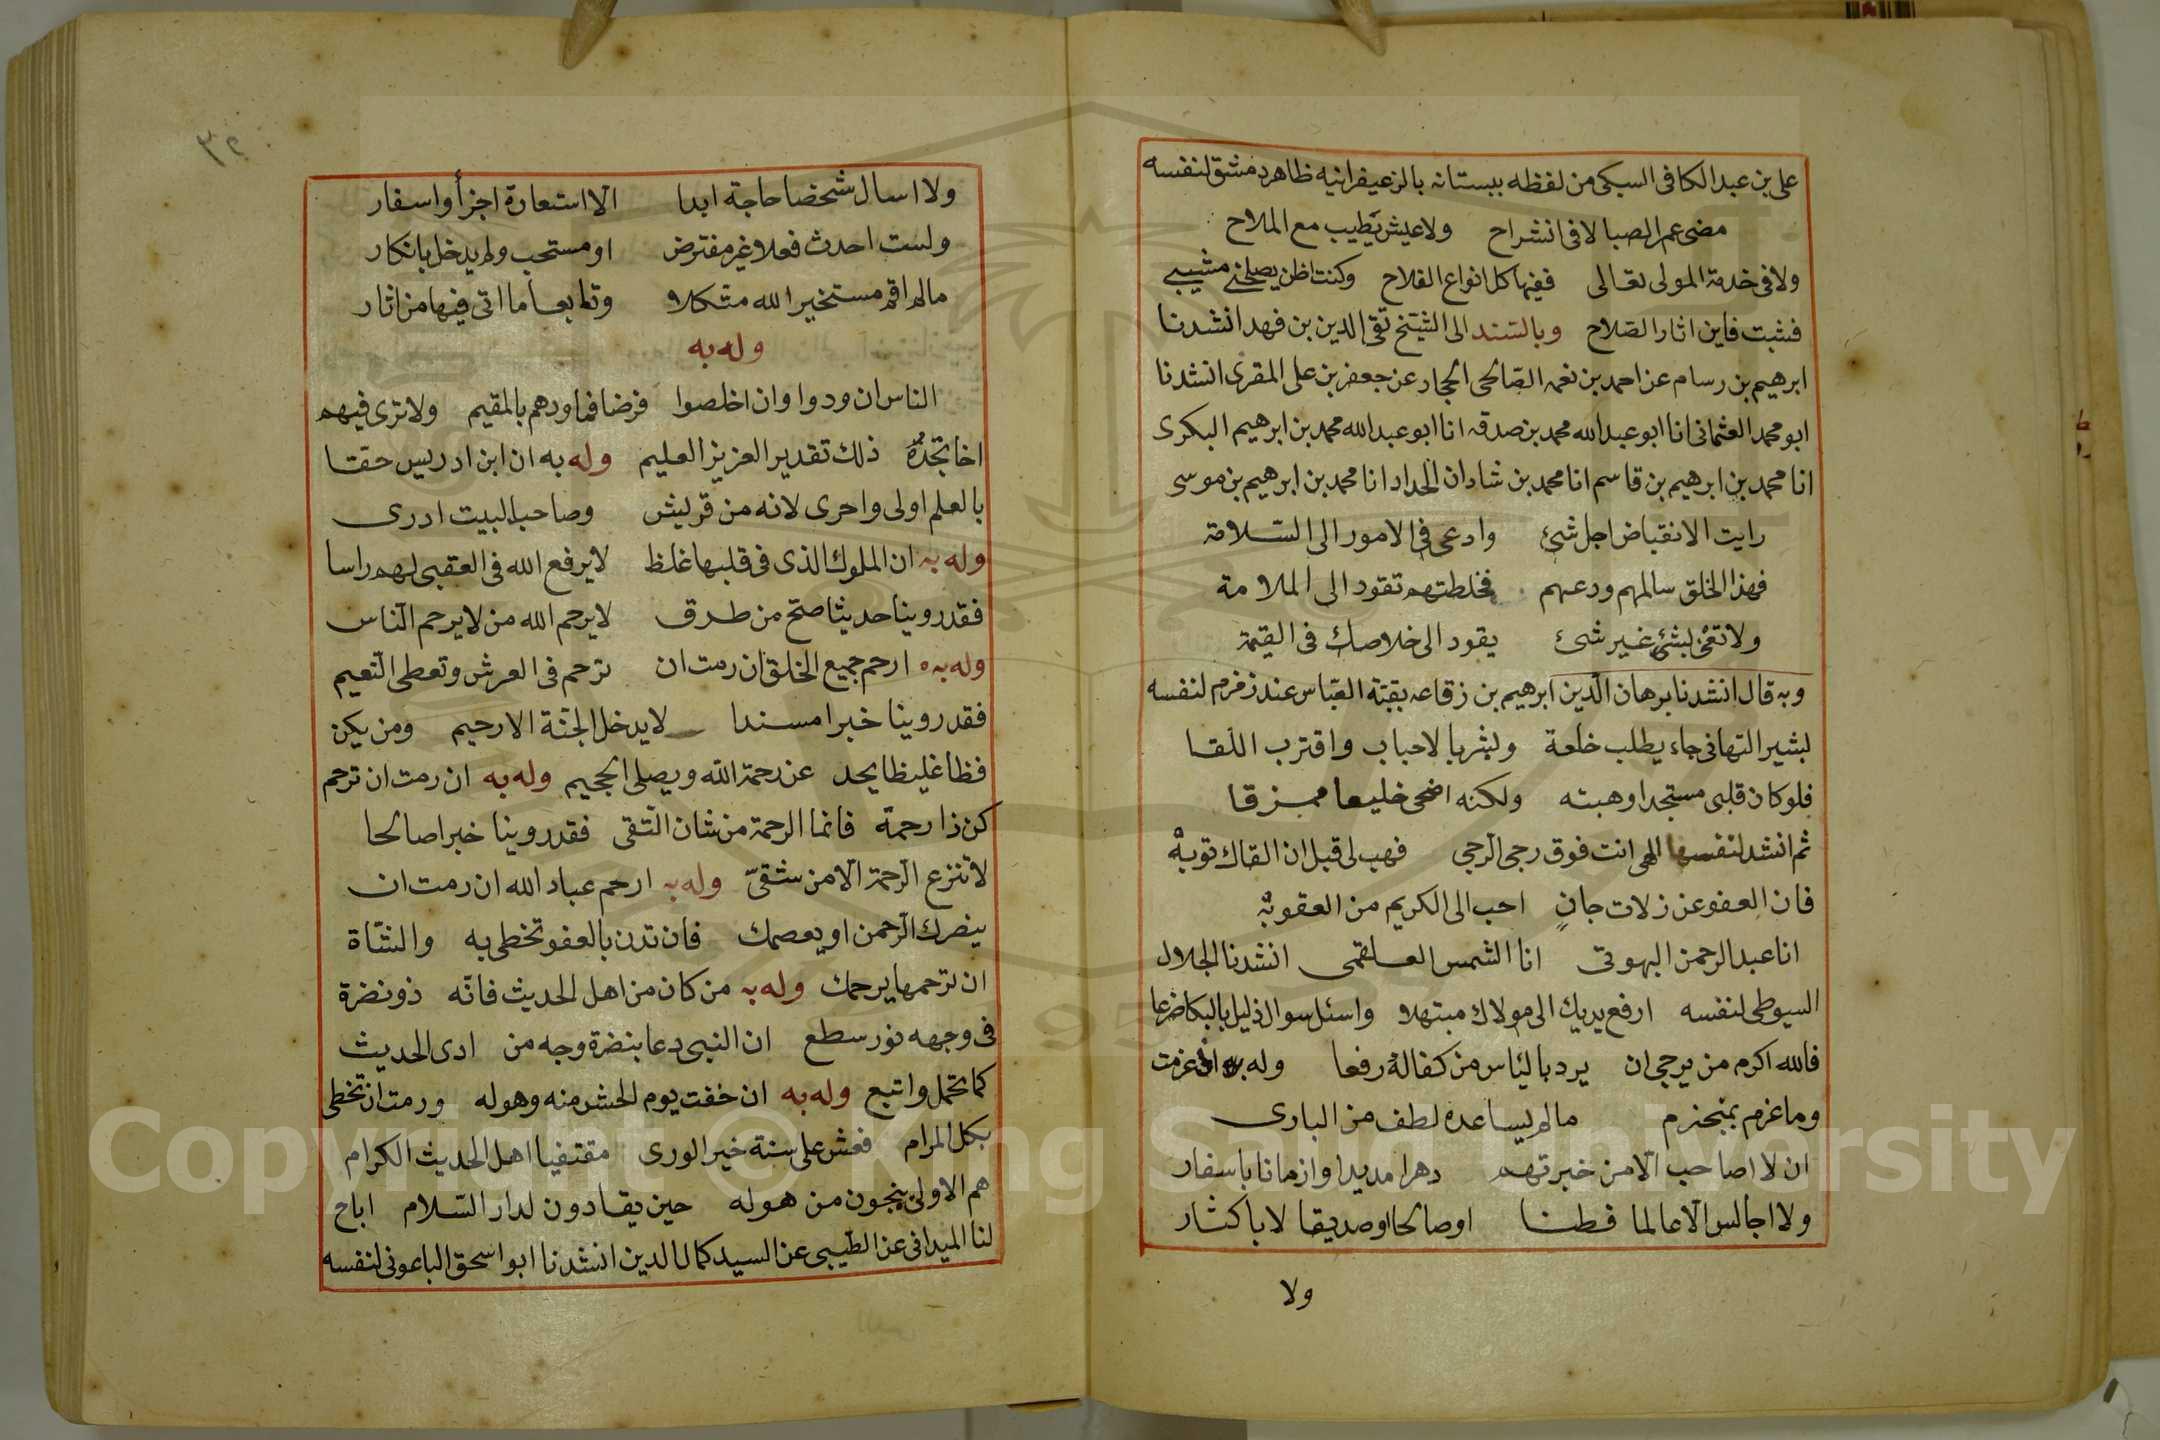 على بن عبد الكافى السبكى من لفظه ببستانه بالزعيفرانيه ظاهر دمشق لنفسه
مضى عمر الصبا لا فى انشراح ولا عيش يطيب مع الملاح
ولا فى خدمة المولى تعالى ففيها كل انواع الفلاح وكنت اظن يصلحنى مشيبى
فشبت فاين اثار الصلاح وبالسند الى الشيخ تقى الدين بن فهد انشدنا
ابرهيم بن رسام عن احمد بن نعمه الصالحى الحجار عن جعفر بن على المقرى انشدنا
ابو محمد العثمانى انا ابو عبد الله محمد بن صدقه انا ابو عبد الله محمد بن ابرهيم البكرى
انا محمد بن ابرهيم بن قاسم انا محمد بن شادان الحداد انا محمد بن ابرهيم بن موسى
رايت الانقباض اجل شئ وادعى فى الامور الى السلامة
فهذا الخلق سالمهم ودعهم فخلطتهم تقود الى الملامة
ولا تعن بشئ غير شئ يقود الى خلاصك فى القيمة
وبه قال انشدنا برهان الدين ابرهيم بن زقاعه بقبة العباس عند زمزم لنفسه
بشير التهانى جاء يطلب خلعة وبشر بالاحباب واقترب اللقا
فلو كان قلبى مستجدا وهبته ولكنه اضحى خليعا ممزقا
ثم انشد لنفسه الهى انت فوق رجى الرجى فهب لى قبل ان القاك توبة
فان العفو عن زلات جانٍ احب الى الكريم من العقوبة
انا عبد الرحمن البهوتى انا الشمس العلقمى انشدنا الجلال
السيوطى لنفسه ارفع يديك الى مولاك مبتهلا واسئل سوال ذليل بالبكا ضرعا
فالله اكرم من يرجى ان يرد بالياس من كفا له رفعا وله به انى عزمت
وما عزم بمنجزم ما لم يساعده لطف من البارى
ان لا اصاحب الا من خبرتهم دهرا مديدا وازمانا باسفار
ولا اجالس الا عالما فطنا او صالحا او صديقا لا باكثار
ولا
ولا اسال شخصا حاجة ابدا الا استعارة اجزأ واسفار
ولست احدث فعلا غير مفترض او مستحب ولم يدخل بانكار
ما لم اقم مستخير الله متكلا وتابعا ما اتى فيها من اثار
وله به
الناس ان ودوا وان اخلصوا فرضا فما ودهم بالمقيم ولا ترى فيهم
اخا تجدّه ذلك تقدير العزيز العليم وله به ان ابن ادريس حقا
بالعلم اولى واحرى لانه من قريش وصاحب البيت ادرى
وله به ان الملوك الذى فى قلبها غلظ لا يرفع الله فى العقبى لهم راسا
فقد روينا حديثا صح من طرق لا يرحم الله من لا يرحم الناس
وله به ارحم جميع الخلق ان رمت ان ترحم فى العرش وتعطى النعيم
فقد روينا خبرا مسندا لا يدخل الجنة الا رحيم ومن يكن
فظا غليظا يحد عن رحمة الله ويصلى الجحيم وله به ان رمت ان ترحم
كن ذا رحمة فانما الرحمة من شان التقى فقد روينا خبرا صالحا
لا تنزع الرحمة الا من شقىّ وله به ارحم عباد الله ان رمت ان
ينصرك الرحمن او يعصمك فان تدن بالعفو تخطى به والشاة
ان ترحمها يرحمك وله به من كان من اهل الحديث فانه ذو نضرة
فى وجهه نور سطع ان النبى دعا بنضرة وجه من ادى الحديث
كما تحمل واتبع وله به ان خفت يوم الحشر منه وهوله ورمت ان تخطى
بكل المرام فعش على سنة خير الورى مقتفيا اهل الحديث الكرام
هم الاولى ينجون من هوله حين يقادون لدار السلام اباح
لنا الميدانى عن الطيبى عن السيد كمال الدين انشدنا ابو اسحق الباعونى لنفسه
Copyright © King Saud University